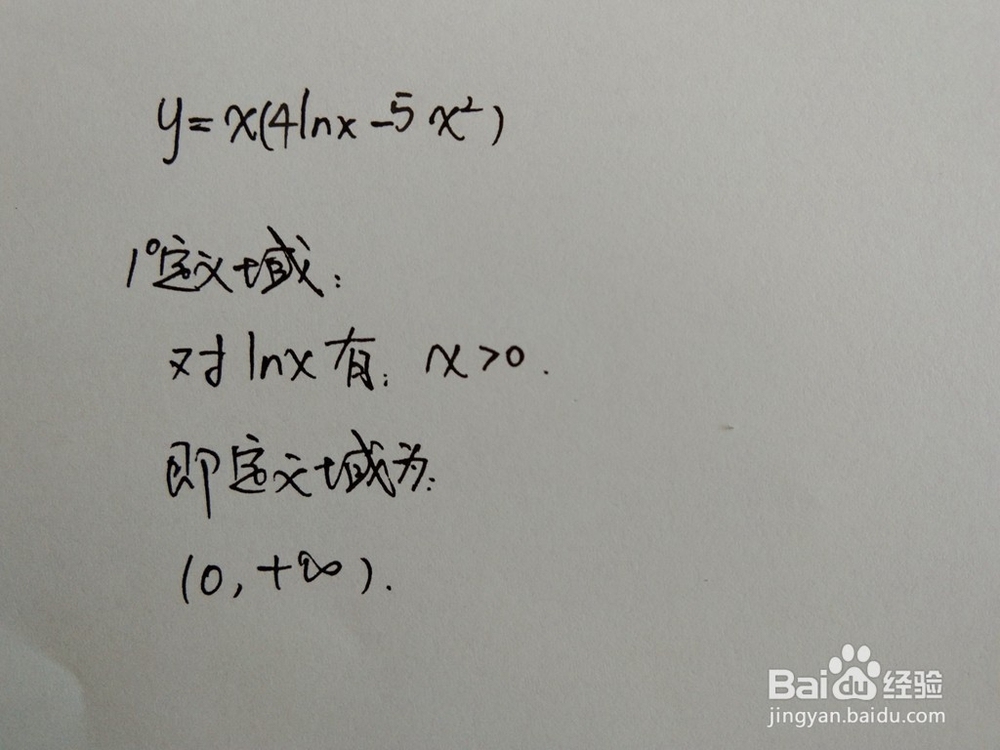 y=x(4lnx-5x²)
1°定义域:
对lnx有: x>0.
即定义域为:
(0,+∞).
Baidu经验
jingyan.baidu.com